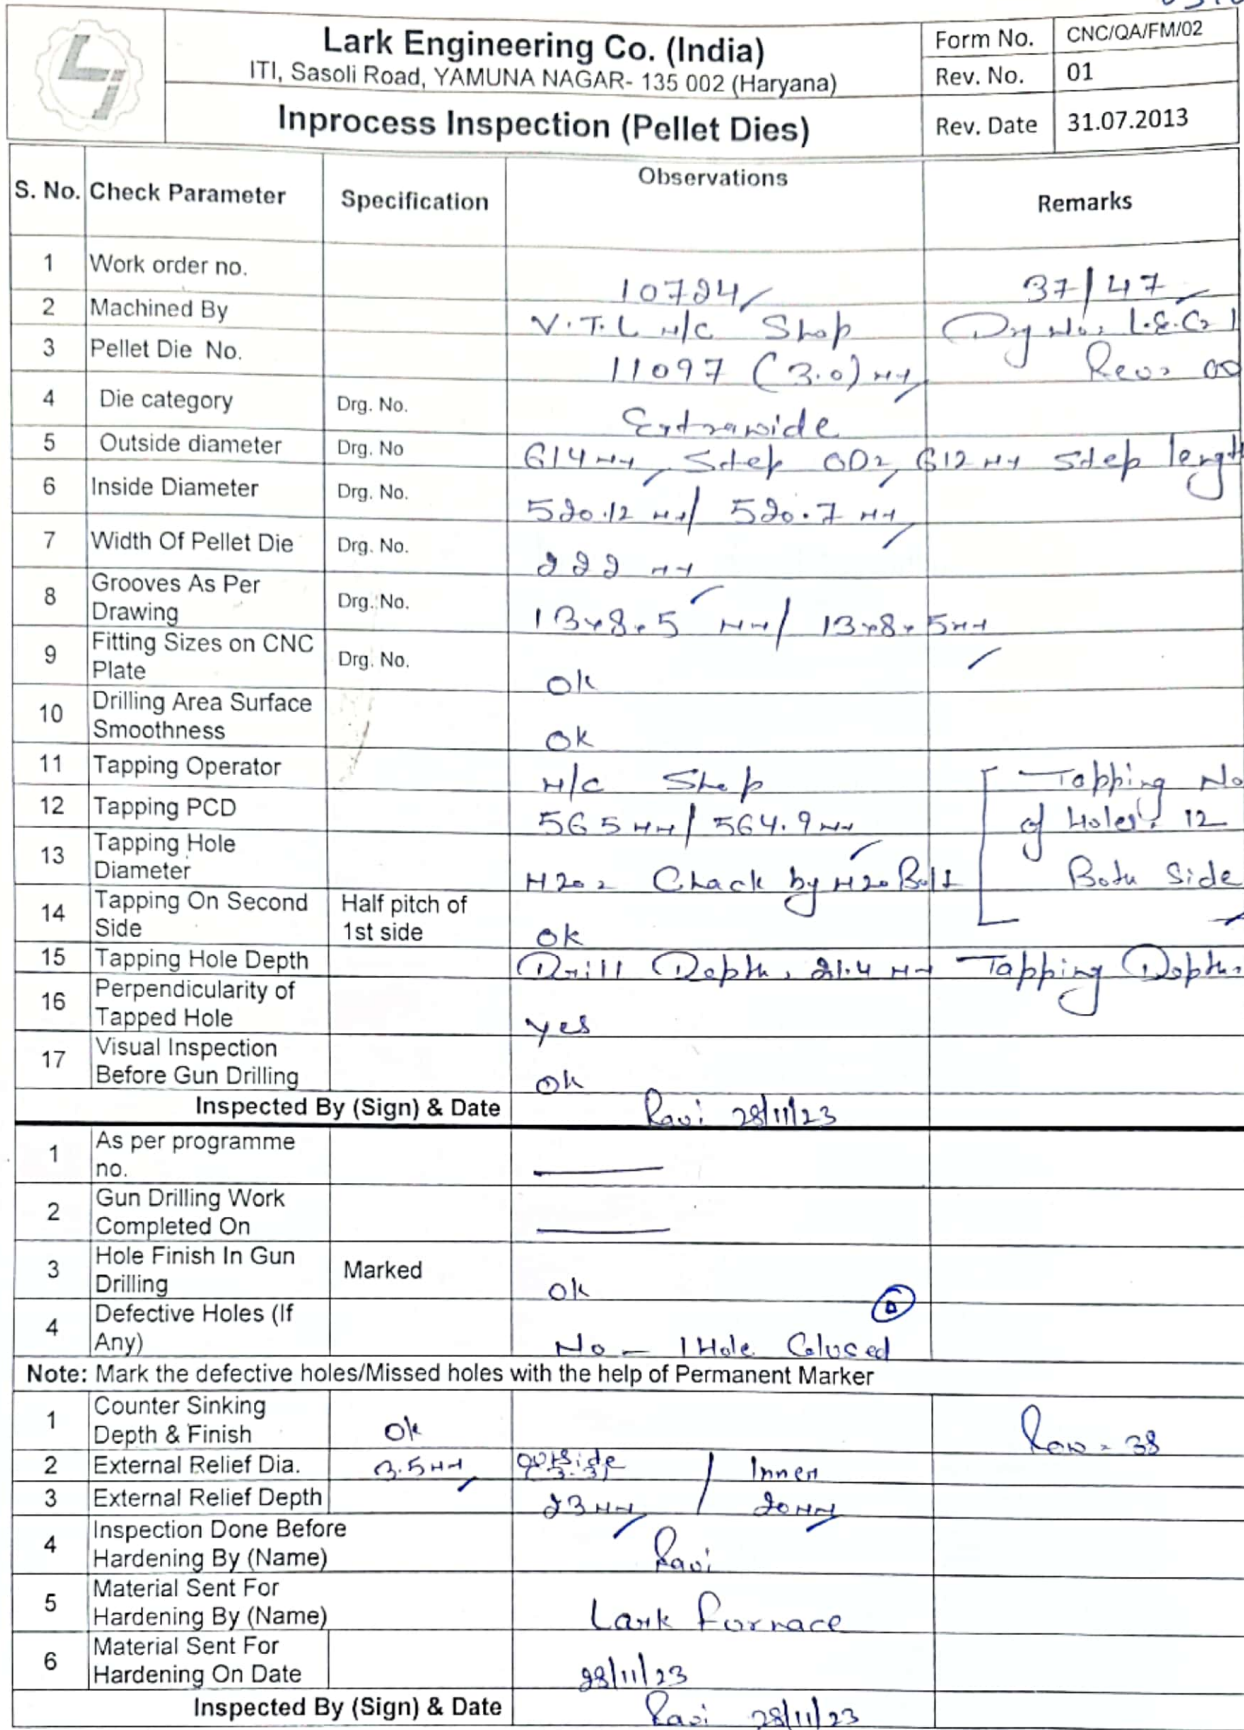 Lark Engineering Co. (India)
ITI, Sasoli Road, YAMUNA NAGAR- 135 002 (Haryana)
Inprocess Inspection (Pellet Dies)
Form No. CNC/QA/FM/02
Rev. No. 01
Rev. Date 31.07.2013
S. No. Check Parameter Specification Observations Remarks
1 Work order no. 10724 37/47
2 Machined By V.T.L M/C Shop Drg No.
3 Pellet Die No. 11097 (3.0) MM Rev: 00
4 Die category Drg. No. Extrawide
5 Outside diameter Drg. No 614 MM, Step OD= 612 MM Step length
6 Inside Diameter Drg. No. 520.12 MM/ 520.7 MM
7 Width Of Pellet Die Drg. No. 222 MM
8 Grooves As Per Drawing Drg. No. 13x8.5 MM/ 13x8.5MM
9 Fitting Sizes on CNC Plate Drg. No. Ok
10 Drilling Area Surface Smoothness Ok
11 Tapping Operator M/C Shop Tapping No
12 Tapping PCD 565 MM/ 564.9 MM of Holes: 12
13 Tapping Hole Diameter M20= Chack by M20 Bolt Both Side
14 Tapping On Second Side Half pitch of 1st side Ok
15 Tapping Hole Depth Drill Depth, 21.4 MM Tapping Depth
16 Perpendicularity of Tapped Hole Yes
17 Visual Inspection Before Gun Drilling Ok
Inspected By (Sign) & Date Ravi 28/11/23
1 As per programme no.
2 Gun Drilling Work Completed On
3 Hole Finish In Gun Drilling Marked Ok
4 Defective Holes (If Any) No - 1 Hole Colused
Note: Mark the defective holes/Missed holes with the help of Permanent Marker
1 Counter Sinking Depth & Finish Ok Row = 38
2 External Relief Dia. 3.5 MM outside / Inner
3 External Relief Depth 23 MM / 20 MM
4 Inspection Done Before Hardening By (Name) Ravi
5 Material Sent For Hardening By (Name) Lark Furnace
6 Material Sent For Hardening On Date 28/11/23
Inspected By (Sign) & Date Ravi 28/11/23